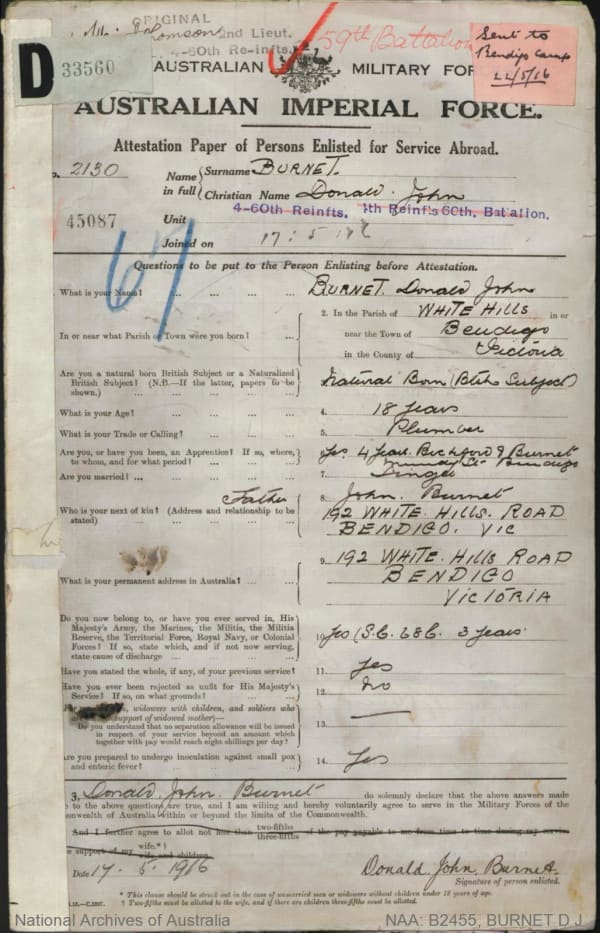 ORIGINAL
Thomson 2nd Lieut.
4-60th Re-infts.
59th Battalion
Sent to
Bendigo Camp
22/5/16
D 33560
AUSTRALIAN MILITARY FOR
AUSTRALIAN IMPERIAL FORCE.
Attestation Paper of Persons Enlisted for Service Abroad.
o. 2130
Name in full
Surname BURNET.
Christian Name Donald. John
4-60th Reinfts. 4th Reinf's 60th. Battalion.
45087
Unit
Joined on 17: 5 1916
67
Questions to be put to the Person Enlisting before Attestation.
. What is your Name? ... ... ... BURNET. Donald John
In or near what Parish or Town were you born? ...
2. In the Parish of WHITE HILLS in or
near the Town of Bendigo
in the County of Victoria
Are you a natural born British Subject or a Naturalized
British Subject? (N.B.—If the latter, papers to be
shown.) ... ... ... ... Natural Born (Btsh Subject)
What is your Age? ... ... ... 4. 18 years
What is your Trade or Calling? ... ... ... 5. Plumber
Are you, or have you been, an Apprentice? If so, where,
to whom, and for what period? ... ... 6. Yes. 4 years. Bickford & Burnet
Mundy St. Bendigo
Are you married? ... ... ... ... 7. Single
Father
Who is your next of kin? (Address and relationship to be
stated) ... ... ... ...
8. John. Burnet
192 WHITE. HILLS. ROAD
BENDIGO. VIC
What is your permanent address in Australia? ... ...
9. 192 WHITE. HILLS ROAD
BENDIGO
VICTORIA
Do you now belong to, or have you ever served in, His
Majesty's Army, the Marines, the Militia, the Militia
Reserve, the Territorial Force, Royal Navy, or Colonial
Forces? If so, state which, and if not now serving,
state cause of discharge ... ... ... 10. Yes (S.C. 68C. 3 years
Have you stated the whole, if any, of your previous service? 11. Yes
Have you ever been rejected as unfit for His Majesty's
Service? If so, on what grounds? ... ... 12. No
, widowers with children, and soldiers who
support of widowed mother)—
Do you understand that no separation allowance will be issued
in respect of your service beyond an amount which
together with pay would reach eight shillings per day? 13. —
Are you prepared to undergo inoculation against small pox
and enteric fever? ... ... ... ... 14. Yes
3, Donald. John. Burnet do solemnly declare that the above answers made
e to the above questions are true, and I am willing and hereby voluntarily agree to serve in the Military Forces of the
onwealth of Australia within or beyond the limits of the Commonwealth.
And I further agree to allot not less than two-fifths three-fifths of the pay payable to me from time to time during my service
e support of my wife.*† wife and children
Date 17. 5. 1916
Donald. John. Burnet.
Signature of person enlisted.
* This clause should be struck out in the case of unmarried men or widowers without children under 18 years of age.
† Two-fifths must be allotted to the wife, and if there are children three-fifths must be allotted.
National Archives of Australia NAA: B2455, BURNET D J